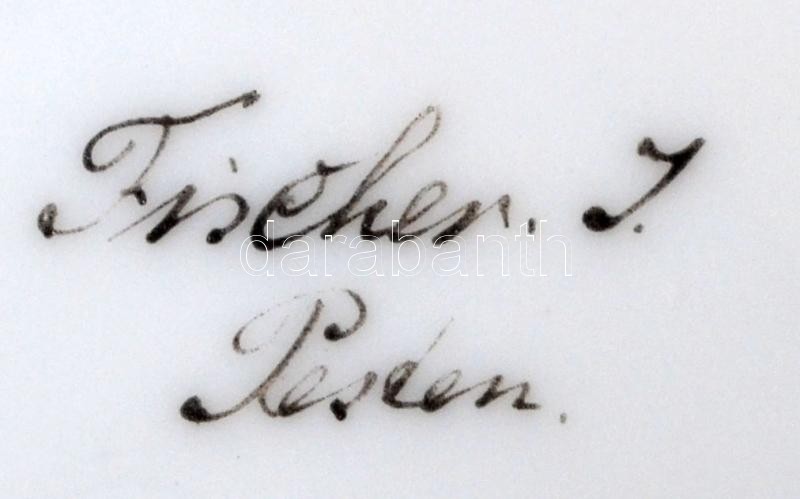 Fischer. I.
darabanth
Pesten.